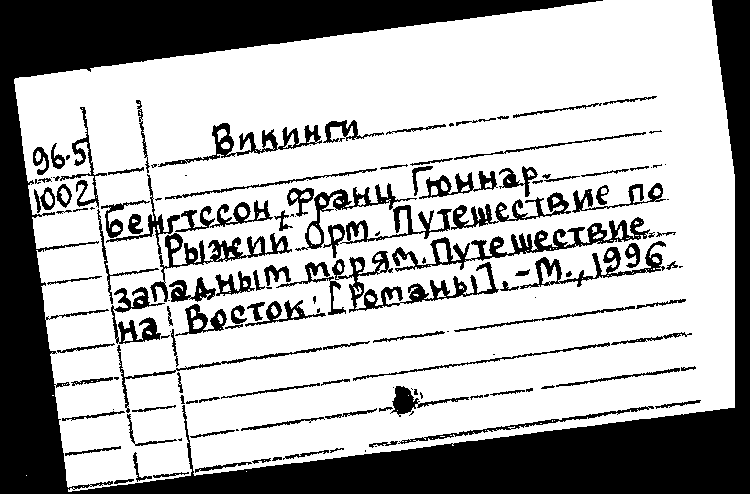 Викинги
96-5
1002
Бенгтссон, Франц Гюннар.
Рыжий Орм. Путешествие по
западным морям. Путешествие
на Восток: [Романы]. - М., 1996.